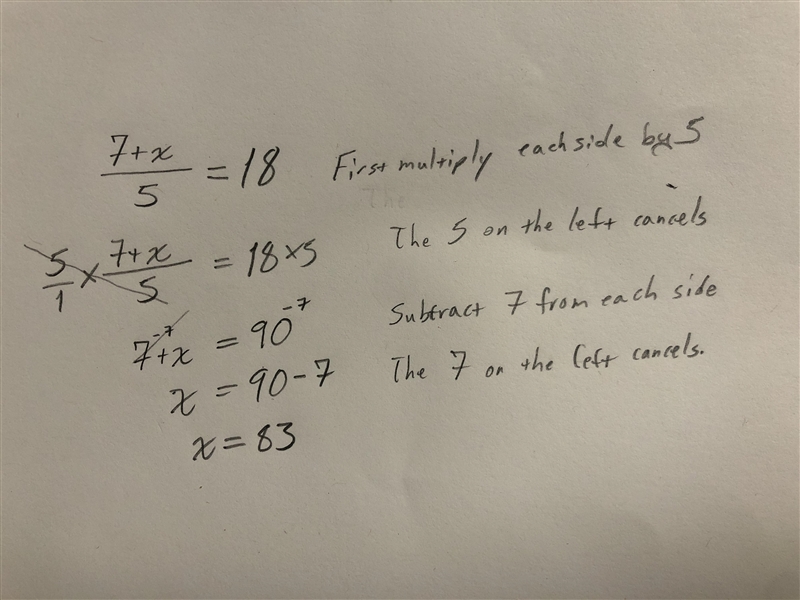 7+x/5 = 18 First multiply each side by 5
5/1 × 7+x/5 = 18×5 The 5 on the left cancels
7-7+x = 90-7 Subtract 7 from each side
x = 90-7 The 7 on the left cancels.
x = 83